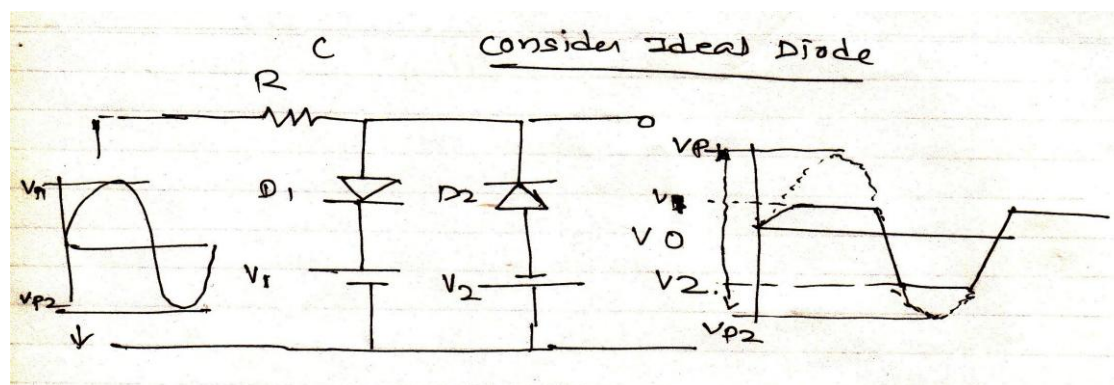 C
Consider Ideal Diode
R
VP1
D1
D2
V O
V1
V2
V2
VP2
VP2